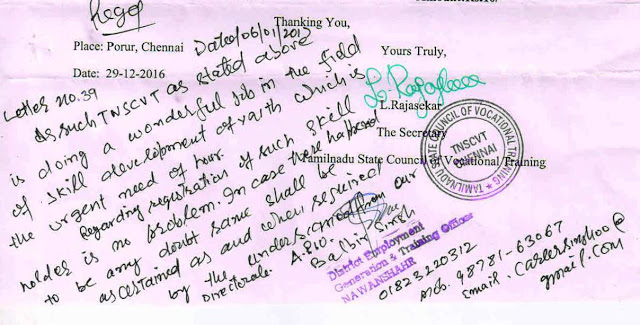 Regd
Thanking You,
Place: Porur, Chennai
Dated, 06/01/2017
Yours Truly,
Date: 29-12-2016
Letter No.39
As such TNSCVT as stated above
is doing a wonderful job in the field
of skill development of youth which is
the urgent need of hour.
Regarding registration of such skill
holder is no problem. In case there happend
to be any doubt same shall be
ascertained as and when required
by the undersigned from our
Directorate.
L.Rajasekar
The Secretary
Tamilnadu State Council of Vocational Training
TAMILNADU STATE COUNCIL OF VOCATIONAL TRAINING
TNSCVT
CHENNAI
A.P.IO.
Balbir Singh
District Employment
Generation & Training Officer
NAWANSHAHR
01823220312
Mob. 98781-63067
Email. careersingh00@
gmail.com